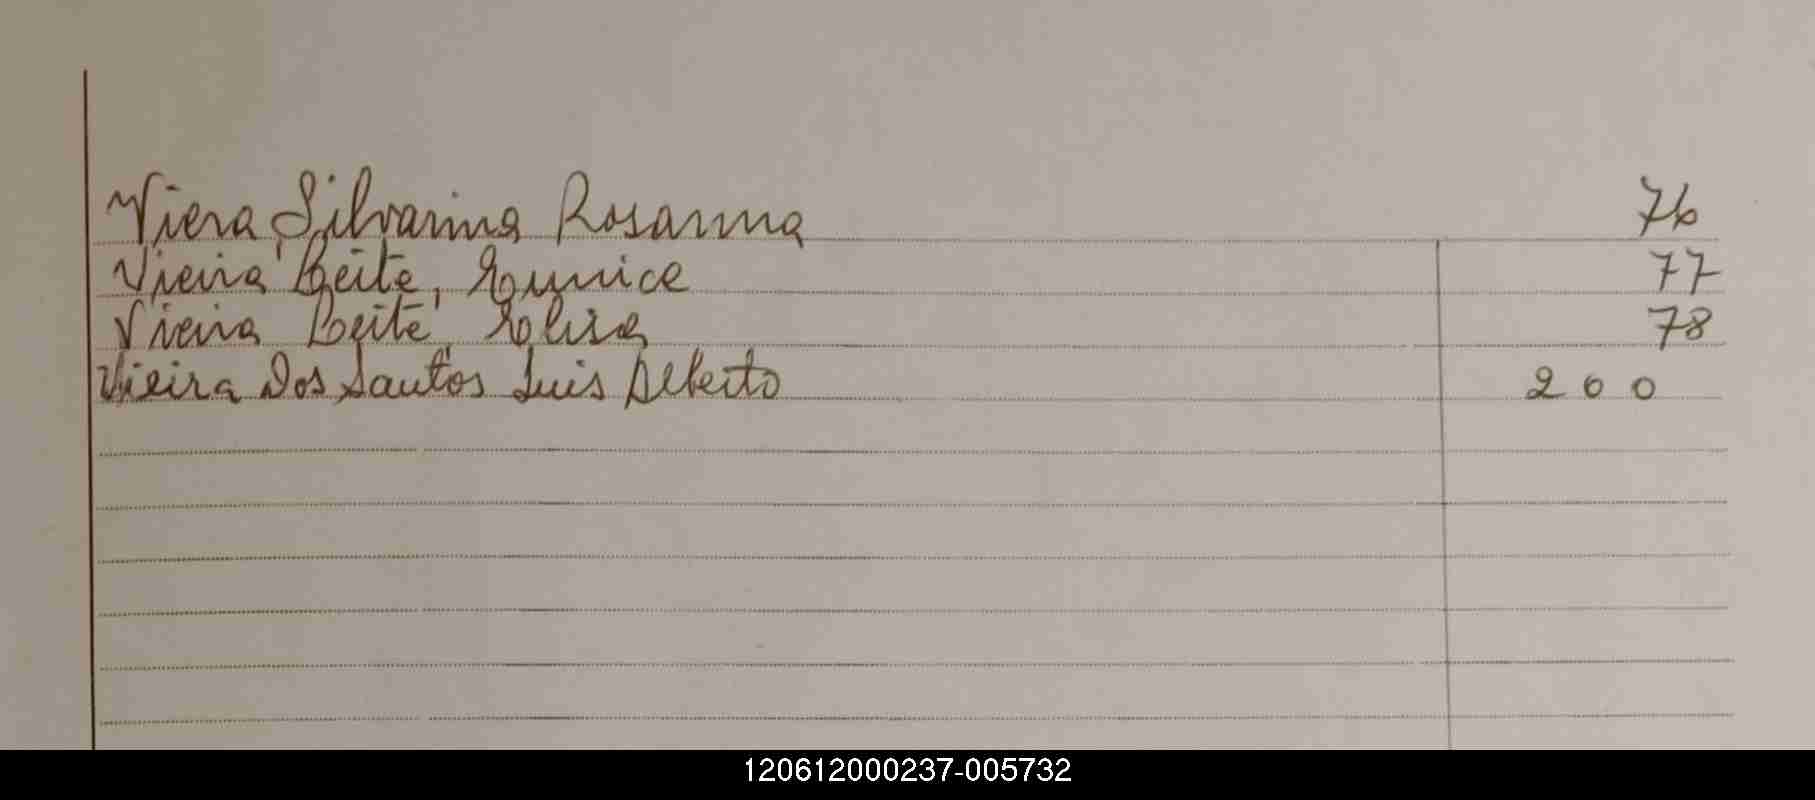 Viera Silvarina Rosanna 76
Vieira Leite, Eunice 77
Vieira Leite, Elisa 78
Vieira Dos Santos Luis Alberto 200
120612000237-005732